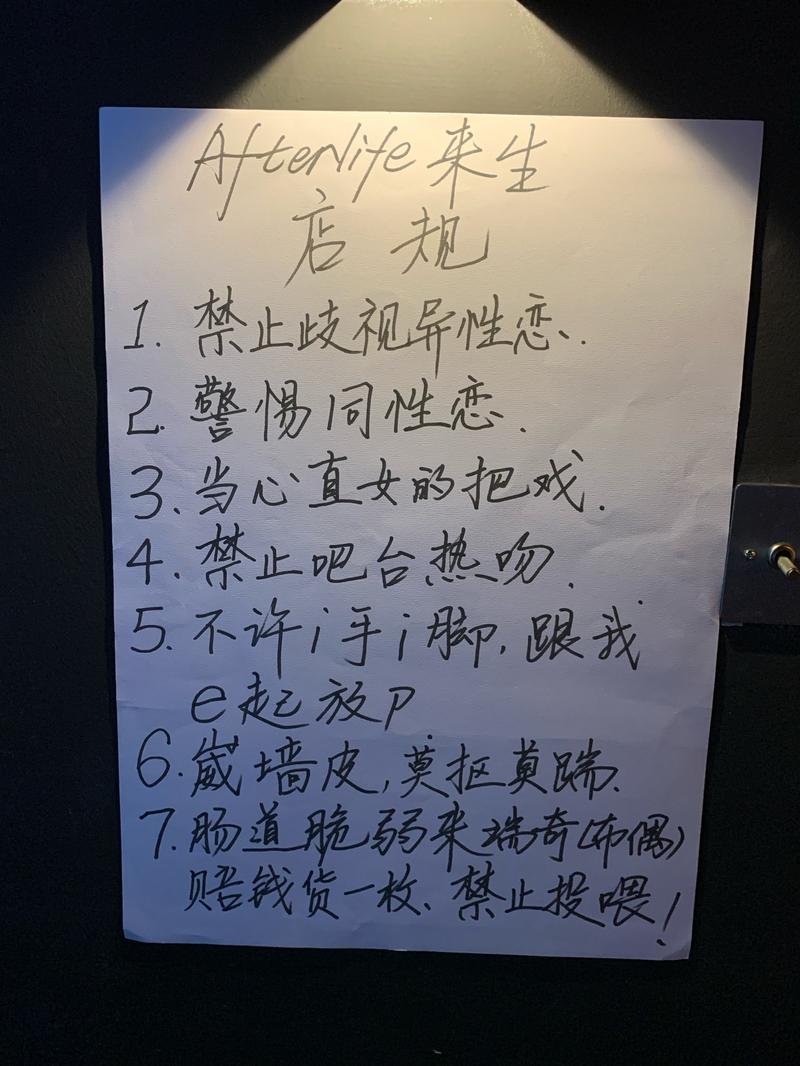 Afterlife 来生
店规
1. 禁止歧视异性恋.
2. 警惕同性恋.
3. 当心直女的把戏.
4. 禁止吧台热吻.
5. 不许i手i脚, 跟我
e起放P
6. 崴墙皮, 莫抠莫踹.
7. 肠道脆弱来瑞奇(布偶)
赔钱货一枚、禁止投喂!